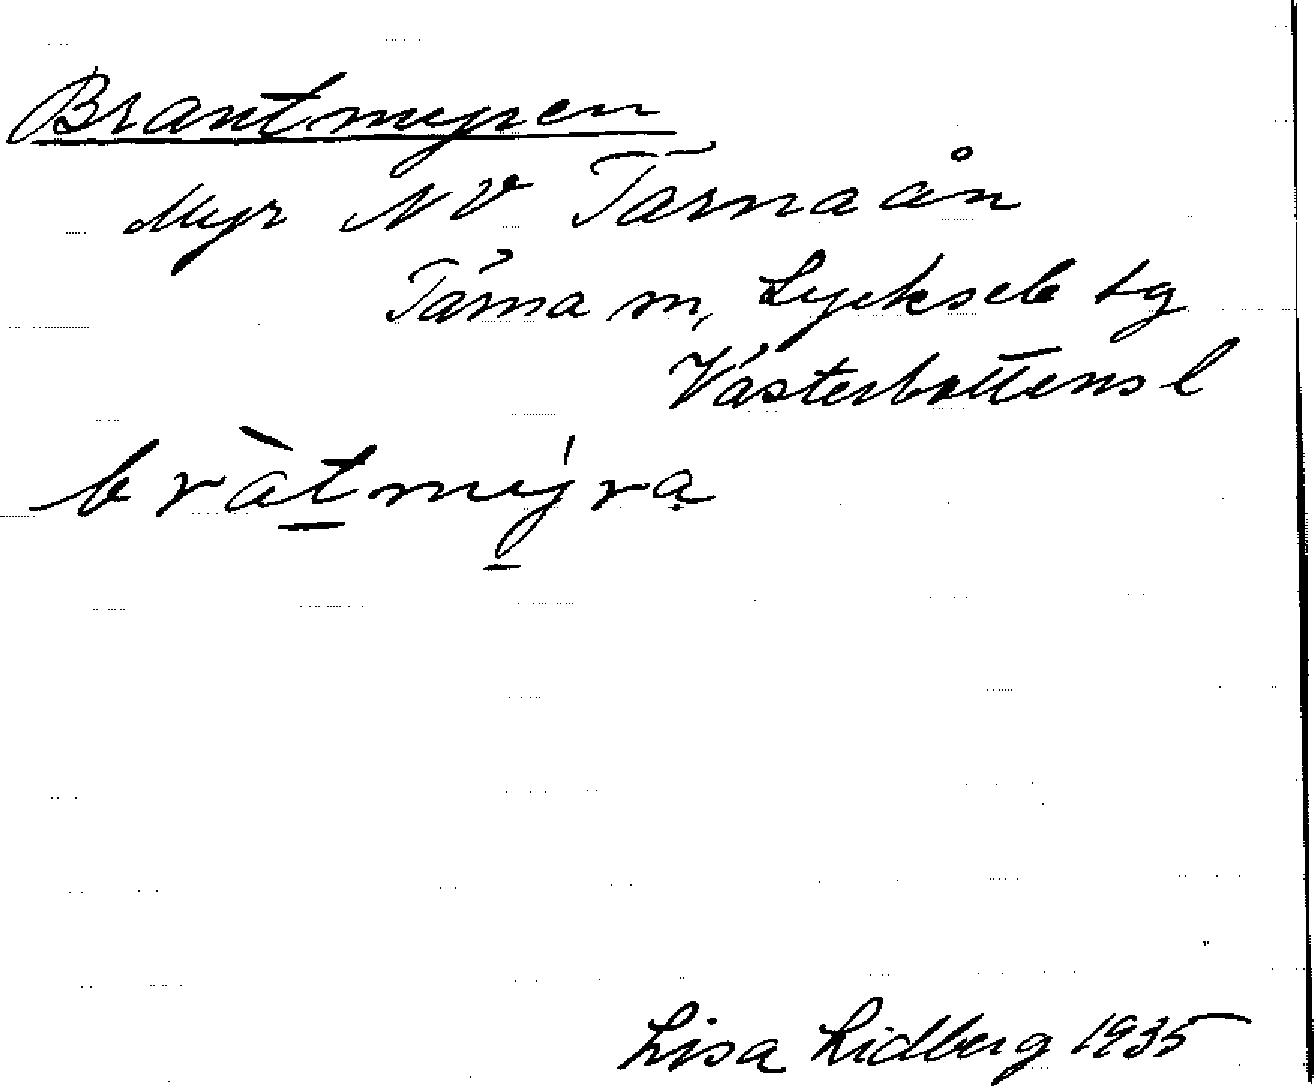 Brantmyren
Myr NV Tärnaån
Tärna sn, Lycksele tg
Västerbottens l
bràt̲mẏ̲rạ
Lisa Lidberg 1935